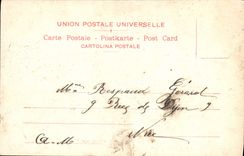 UNION POSTALE UNIVERSELLE
Carte Postale - Postkarte - Post Card
CARTOLINA POSTALE
Mme Respaud Gérard
9 Rue de Dijon 9
Nice
A-M